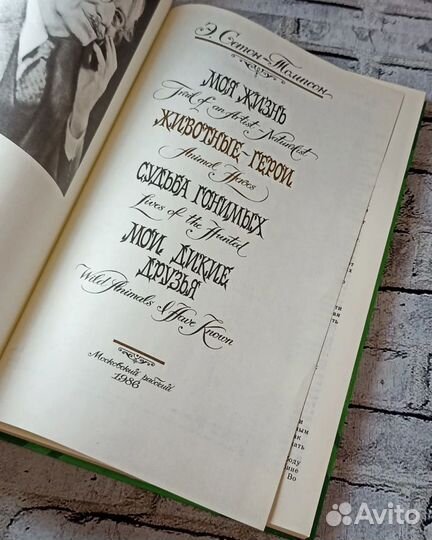 Э. Сетон-Томпсон
МОЯ ЖИЗНЬ
Trail of an Artist-Naturalist
ЖИВОТНЫЕ-ГЕРОИ
Animal Heroes
СУДЬБА ГОНИМЫХ
Lives of the Hunted
МОИ ДИКИЕ
ДРУЗЬЯ
Wild Animals I Have Known
Московский рабочий
1986
Avito